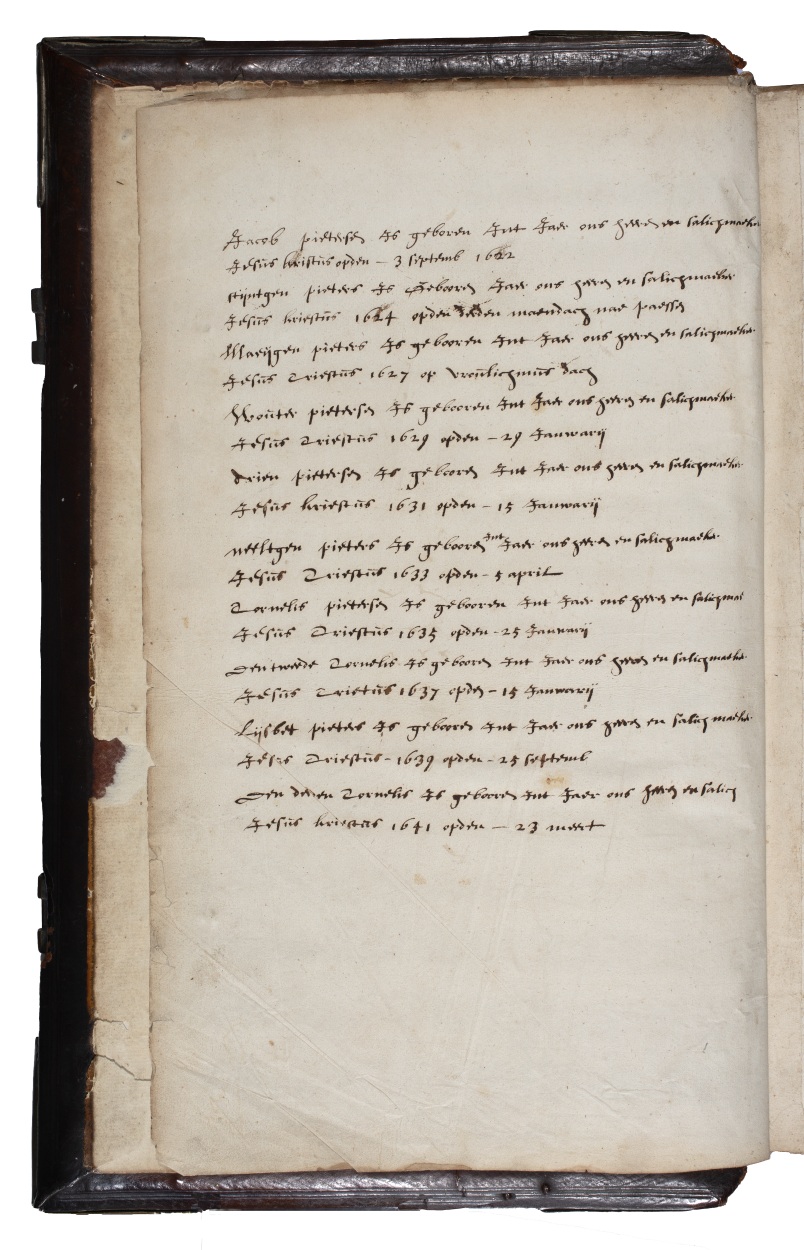 Jacob pietersen Is geboren Int Jaer ons heeren en salichmaeker
Jesus kristus opden - 3 septemb 1622
stijntgen pieters Is Gebooren Jaer ons heeren en salichmaeker
Jesus kriestus 1624 opden maendach nae paessen
Marijgen pieters Is gebooren Int Jaer ons heeren en salichmaeker
Jesus Criestus 1627 op vroulichmus dach
Wouter pietersen Is gebooren Int Jaer ons heeren en salichmaeker
Jesus Criestus 1629 opden - 29 Januwarij
Arien pietersen Is gebooren Int Jaer ons heeren en salichmaeker
Jesus kriestus 1631 opden - 15 Januwarij
neeltgen pieters Is gebooren Int Jaer ons heeren en salichmaeker
Jesus Criestus 1633 opden - 5 april
Cornelis pietersen Is gebooren Int Jaer ons heeren en salichmae
Jesus Criestus 1635 opden - 25 Januwarij
Den tweede Cornelis Is gebooren Int Jaer ons heeren en salichmaeker
Jesus Crietus 1637 opden - 15 Januwarij
Lijsbet pieters Is gebooren Int Jaer ons heeren en salichmaeker
Jesus Criestus - 1639 opden - 25 septemb
Den deren Cornelis Is gebooren Int Jaer ons heeren en salich
Jesus kriestus 1641 opden - 23 meert